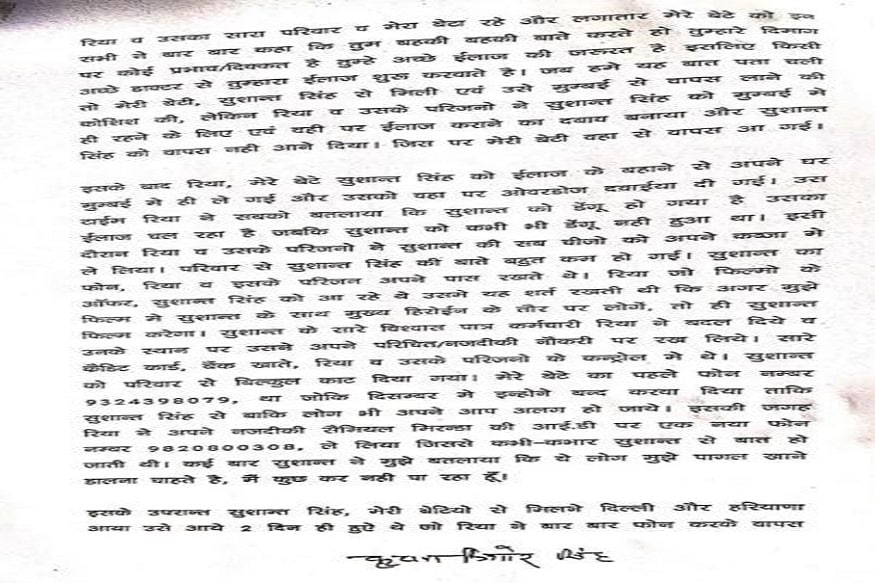 रिया व उसका सारा परिवार व मेरा बेटा रहे और लगातार मेरे बेटे को इन
सभी ने बार बार कहा कि तुम बहकी बहकी बाते करते हो तुम्हारे दिमाग
पर कोई प्रभाव/दिक्कत है तुम्हे अच्छे ईलाज की जरूरत है इसलिए किसी
अच्छे डाक्टर से तुम्हारा ईलाज शुरू करवाते है। जब हमे यह बात पता चली
तो मेरी बेटी, सुशान्त सिंह से मिली एवं उसे मुम्बई से वापस लाने की
कोशिश की, लेकिन रिया व उसके परिजनो ने सुशान्त सिंह को मुम्बई मे
ही रहने के लिए एवं यही पर ईलाज कराने का दवाव बनाया और सुशान्त
सिंह को वापस नही आने दिया। जिस पर मेरी बेटी वहा से वापस आ गई।
इसके बाद रिया, मेरे बेटे सुशान्त सिंह को ईलाज के बहाने से अपने घर
मुम्बई मे ही ले गई और उसको वहा पर ओवरडोज दवाईया दी गई। उस
टाईम रिया ने सबको बतलाया कि सुशान्त को डेंगू हो गया है उसका
ईलाज चल रहा है जबकि सुशान्त को कभी भी डेंगू नही हुआ था। इसी
दौरान रिया व उसके परिजनो ने सुशान्त की सब चीजो को अपने कब्जा मे
ले लिया। परिवार से सुशान्त सिंह की बाते बहुत कम हो गई। सुशान्त का
फोन, रिया व इसके परिजन अपने पास रखते थे। रिया जो फिल्मो के
ऑफर, सुशान्त सिंह को आ रहे थे उसमे यह शर्त रखती थी कि अगर मुझे
फिल्म मे सुशान्त के साथ मुख्य हिरोईन के तौर पर लोगें, तो ही सुशान्त
फिल्म करेगा। सुशान्त के सारे विश्वास पात्र कर्मचारी रिया ने बदल दिये व
उनके स्थान पर उसने अपने परिचित/नजदीकी नौकरी पर रख लिये। सारे
क्रैडिट कार्ड, बैंक खाते, रिया व उसके परिजनो के कन्ट्रोल मे थे। सुशान्त
को परिवार से बिल्कुल काट दिया गया। मेरे बेटे का पहले फोन नम्बर
9324398079, था जोकि दिसम्बर मे इन्होने बन्द करवा दिया ताकि
सुशान्त सिंह से बाकि लोग भी अपने आप अलग हो जाये। इसकी जगह
रिया ने अपने नजदीकी सैमियल मिरन्डा की आई.डी पर एक नया फोन
नम्बर 9820800308, ले लिया जिससे कभी-कभार सुशान्त से बात हो
जाती थी। कई बार सुशान्त ने मुझे बतलाया कि ये लोग मुझे पागल खाने
डालना चाहते है, मैं कुछ कर नही पा रहा हूँ।
इसके उपरान्त सुशान्त सिंह, मेरी बेटियो से मिलगे दिल्ली और हरियाणा
आया उसे आये 2 दिन ही हुऐ थे जो रिया ने बार बार फोन करके वापस
कृष्ण किशोर सिंह